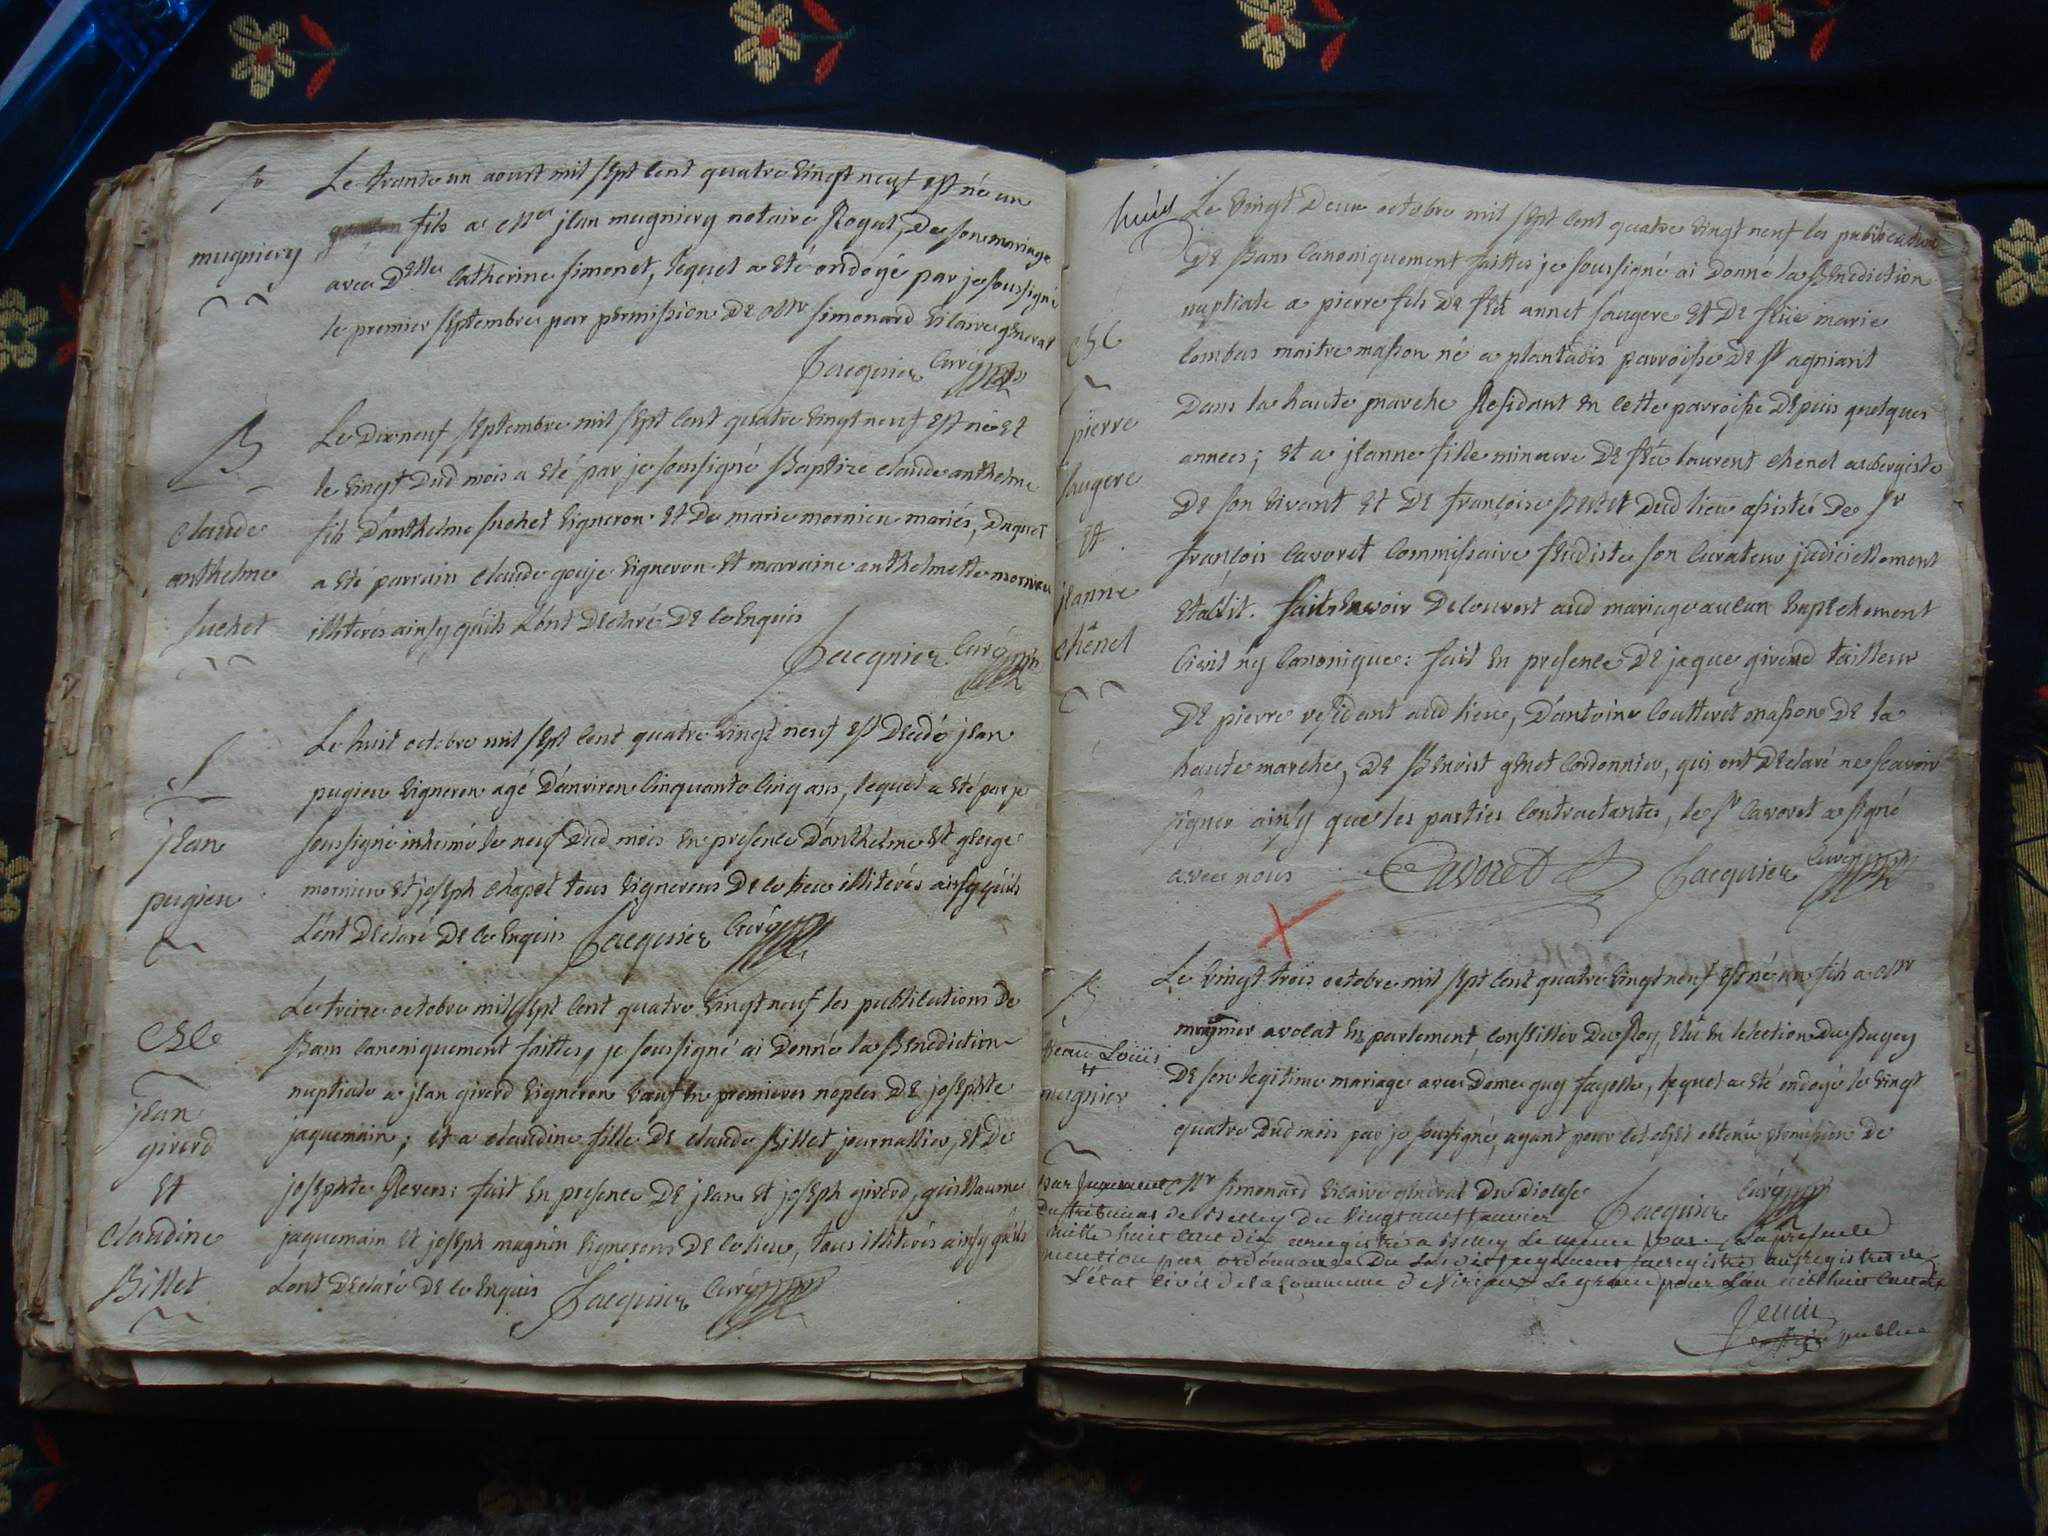 mugniery
Le trante un aoust mil sept cent quatre vingt neuf est né un
fils a Mr jean mugniery notaire Royal, de son mariage
avec Dlle Catherine Simonet, lequel a eté ondoyé par je soussigné
le premier septembre par permission de Mr Simonard vicaire general
Jacquier Curé
B
claude
anthelme
Suchet
Le dixneuf septembre mil sept cent quatre vingt neuf est né et
le vingt dud mois a eté par je soussigné Baptizé claude anthelme
fils d'anthelme Suchet vigneron et de marie mornieu mariés, Duquel
a eté parrain claude gouje vigneron et marraine anthelmette mornieu
illiterés ainsy qu'ils l'ont declaré de ce enquis
Jacquier Curé
S
jean
pugieu
Le huit octobre mil sept cent quatre vingt neuf est decedé jean
pugieu vigneron agé d'anviron cinquante cinq ans, lequel a eté par je
soussigné inhumé le neuf dud mois en presence d'anthelme et george
mornieu et joseph chapot tous vignerons de ce lieu illiterés ainsy qu'ils
l'ont declaré de ce enquis Jacquier Curé
jean
girerd
et
claudine
Billet
Le treize octobre mil sept cent quatre vingt neuf les publications de
Bans canoniquement faittes, je soussigné ai donné la Benediction
nuptiale a jean girerd vigneron veuf en premieres nopces de josephte
jaquemain; et a claudine fille de claude Billet journallier, et de
josephte Revers: fait en presence de jean et joseph girerd, guillaume
jaquemain et joseph magnin vignerons de ce lieu, tous illiterés ainsy qu'ils
l'ont declaré de ce enquis Jacquier Curé
huit
pierre
faugere
et
jeanne
chênel
Le vingt deux octobre mil sept cent quatre vingt neuf les publications
de Bans canoniquement faittes je soussigné ai donné la Benediction
nuptiale a pierre fils de feu annet faugere et de feüe marie
combas maitre masson né a plantadis parroisse de St agniant
dans la haute marche Residant en cette parroisse depuis quelques
annees; et a jeanne fille mineure de feu laurent chenel aubergiste
de son vivant et de françoise dud lieu assistée de Sr
françois cavoret commissaire feudiste son curateur judiciellement
etablit. sans avoir decouvert aud mariage aucun empechement
civil ny canonique: fait en presence de jaque girerd tailleur
de pierre residant aud lieu, d'antoine coutteret masson de la
haute marche, de Benoist genet cordonnier, qui ont declaré ne scavoir
signer ainsy que les parties contractantes, le Sr Cavoret a signé
avec nous Cavoret Jacquier Curé
B
Louis
mugnier
Le vingt trois octobre mil sept cent quatre vingt neuf est né un fils a Mr
mugnier avocat en parlement, conseiller du Roy, elû en l'election du Bugey
de son legitime mariage avec dame guy fayolle, lequel a eté ondoyé le vingt
quatre dud mois par je soussigné, ayant pour cet effet obtenu permission de
Mr Simonard vicaire general du diocese Jacquier Curé
Par Jugement
du tribunal de Belley du vingt neuf janvier
mille huit cent dix enregistré a Belley le meme jour. La presente
mention par ordonnance du susdit jugement enregistré au registre de
l'état civil de la commune de Virieux le grand pour l'an mil huit cent dix
officier public